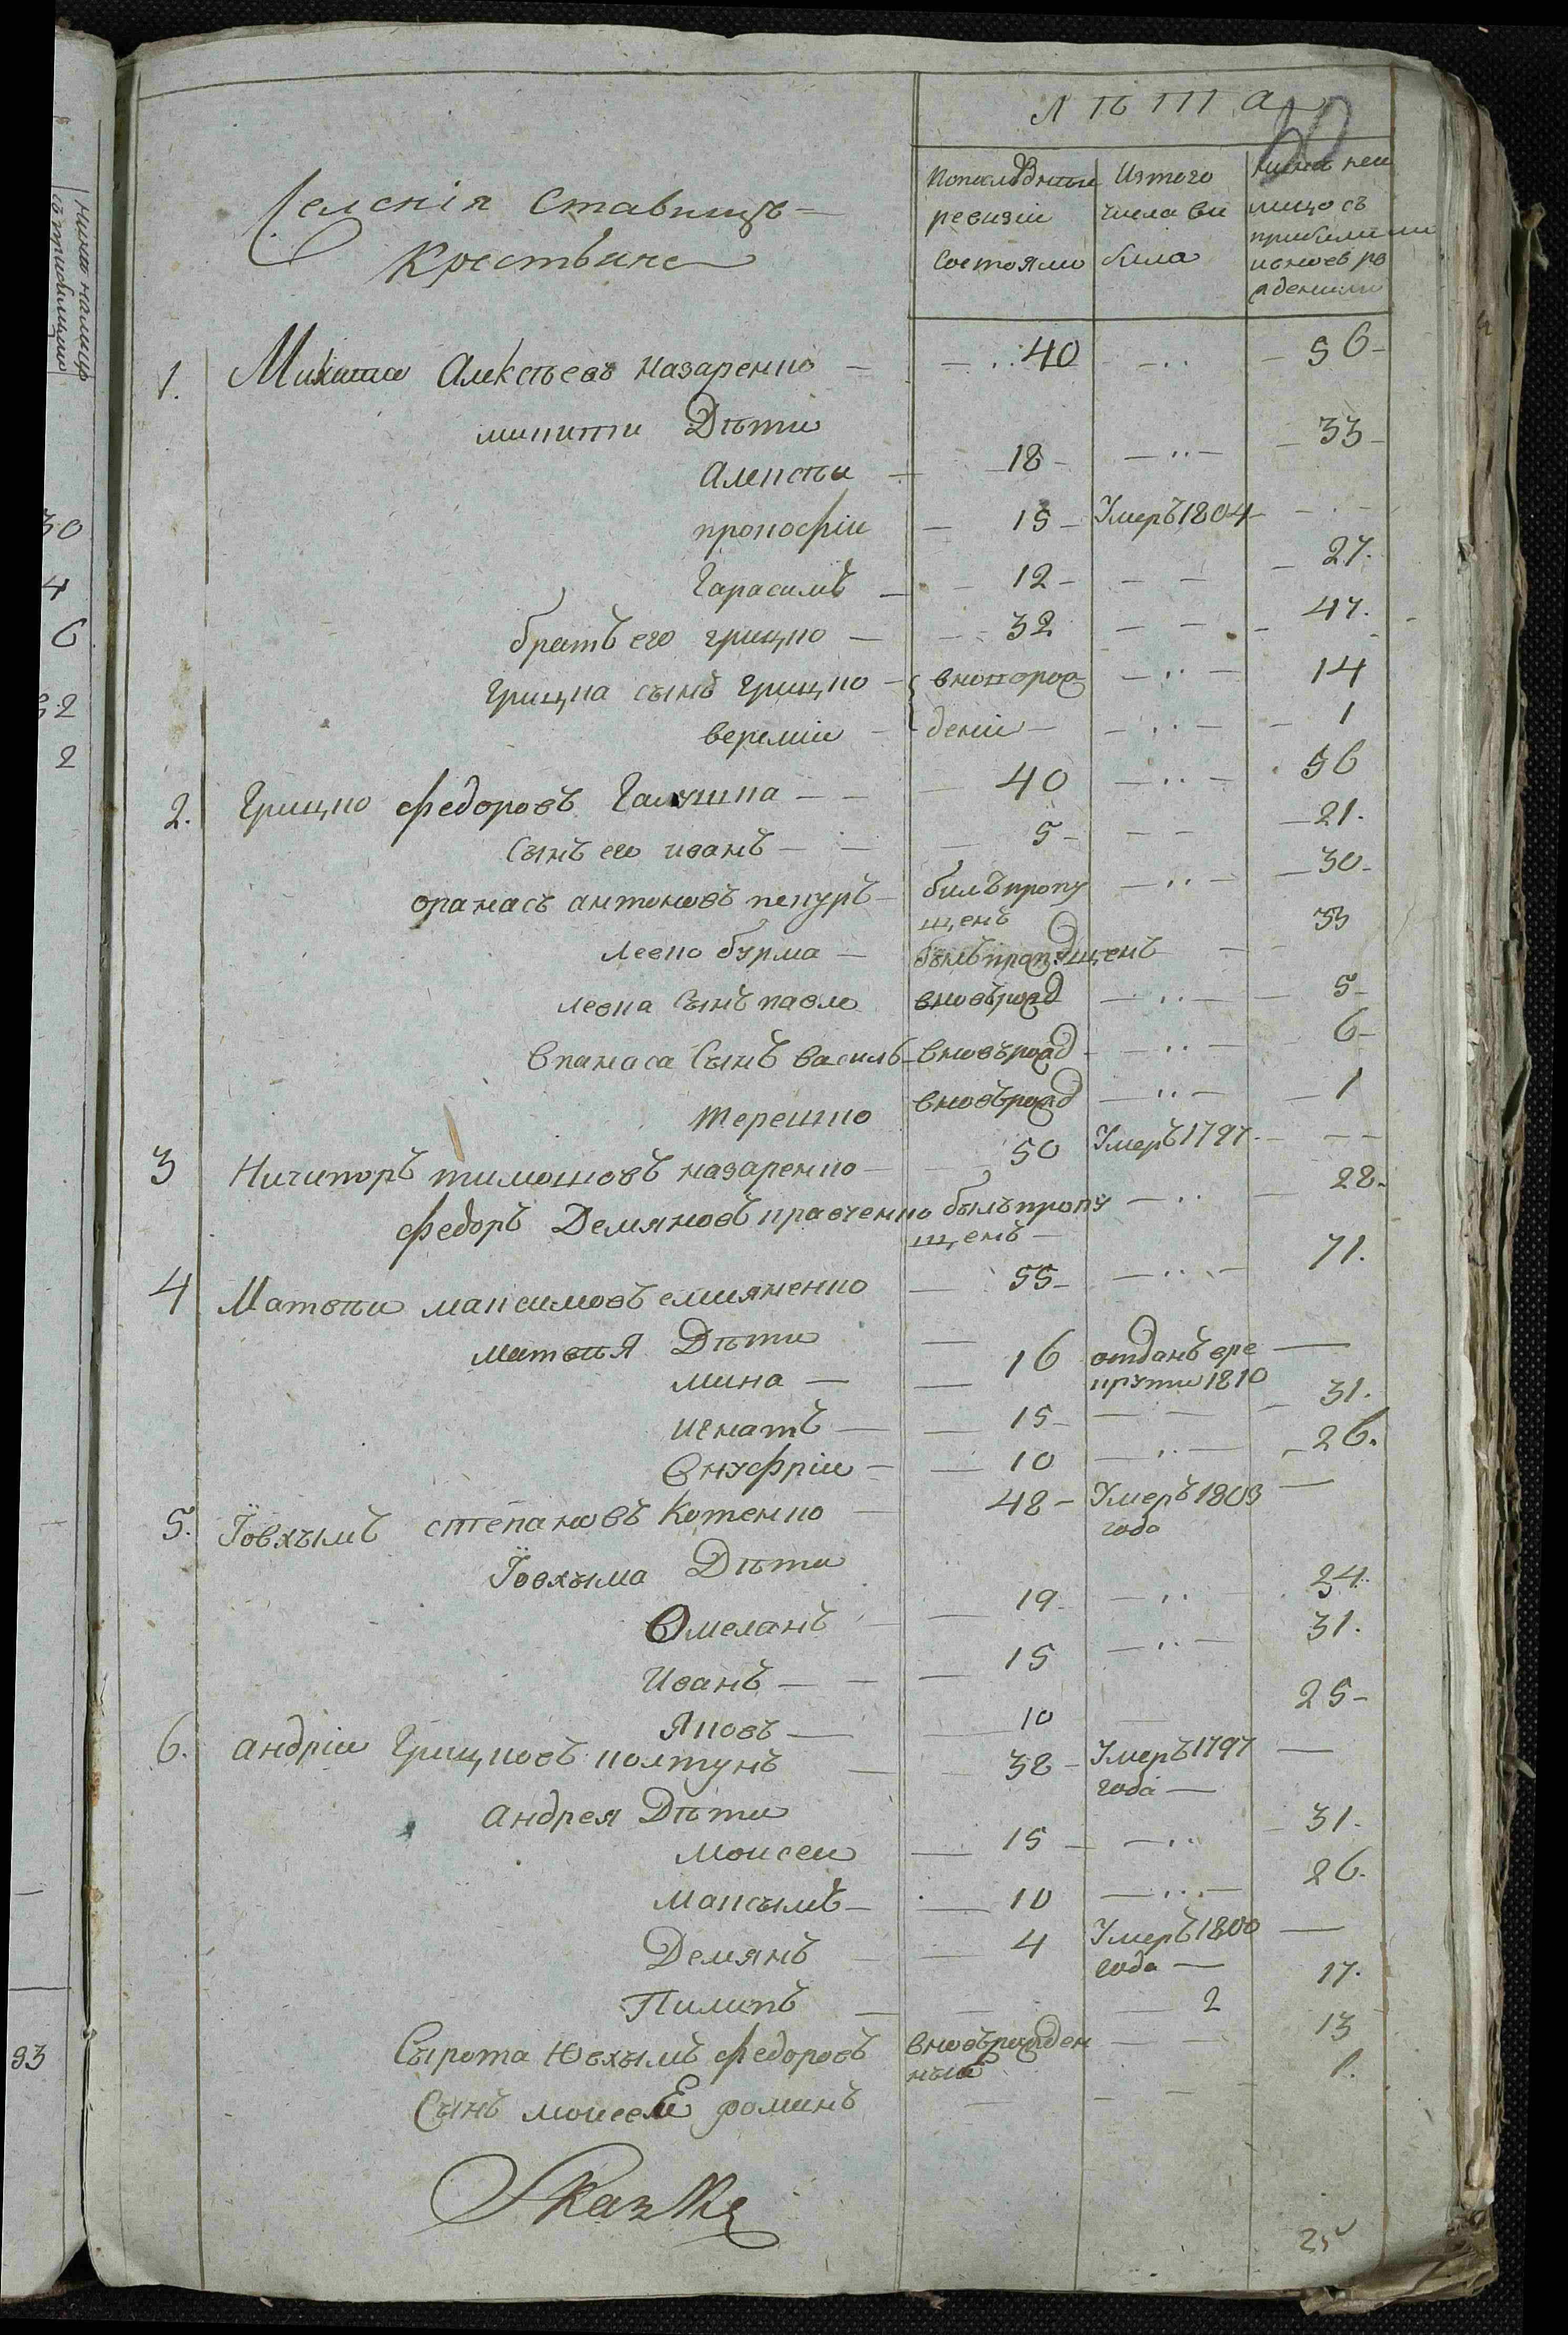 Лѣта
30
Селенія Ставищъ
Крестьяне
Попослѣдніи ревизіи состояло
Изтого числа вибила
Нинѣ налицо съ прибилими
1. Микита Алексѣевъ назаренко — 40 — 56
микити Дѣти
Алексѣи — 18 — 33
прокофіи — 15 — Умеръ 1804
Гарасимъ — 12 — 27.
братъ его грицко — 32 — 47.
Грицка сынъ грицко — вновород — 14
веремій — деніи — 1
2. Грицко федоровъ Галушка — 40 — 56
Сынъ его иванъ — 5 — 21.
опанасъ антоновъ — билъ пропу — 30
щенъ
левко бурма — былъ пропущенъ — 33
левка Сынъ павло — вновърожд — 5
Опанаса Сынъ василь — вновърожд — 6
терешко — вновърожд — 1
3 Ничипоръ тимошовъ назаренко — 50 — Умеръ 1797
федоръ Демяновъ кравченко — былъ пропу — 28.
щенъ
4 Матвѣи максимовъ емияненко — 55 — 71.
матвѣя Дѣти
мина — 16 — отданъ вре
крути 1810
игнатъ — 15 — 31.
Онуфріи — 10 — 26.
5. Іовхъимъ степановъ Котенко — 48 — Умеръ 1803
года
Іовхъима Дѣти
Омеланъ — 19 — 34.
Иванъ — 15 — 31.
Яковъ — 10 — 25
6. андріи Грицковъ колтунъ — 38 — Умеръ 1797
года
андрея Дѣти
моисеи — 15 — 31.
максымъ — 10 — 26.
Демянъ — 4 — Умеръ 1800
года
Пилипъ — 2 — 17.
Сырота Ювхымъ федоровъ — вновърожден — 13
ныи
Сынъ моисеЕи фоминъ — 1.
Нинѣ налицо
съ прибилими
30
4
6
32
2
93